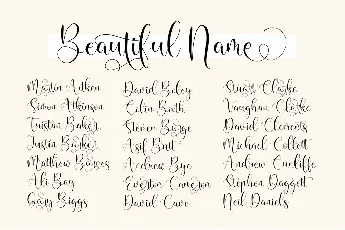 Beautiful Name
Martin Aitken
Simon Atkinson
Tristan Baker
Justin Barker
Matthew Basses
Abi Bay
Gary Biggs
David Boley
Colin Booth
Steven Burge
Asif Butt
Andrew Bye
Everton Cameron
David Cave
Stuart Clarke
Vaughan Clarke
David Clements
Michael Collett
Andrew Cunliffe
Stephen Daggett
Neil Daniels